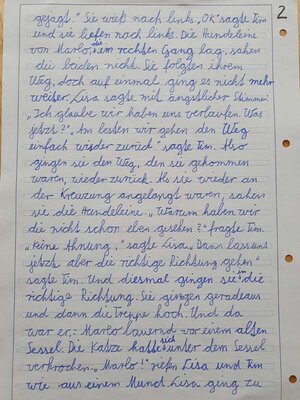 2
gejagt." Sie wieß nach links. „Ok" sagte Tim
und sie liefen nach links. Die Hundeleine
von Marlo, die im rechten Gang lag, sahen
die beiden nicht. Sie folgten ihrem
Weg, doch auf einmal ging es nicht mehr
weiter. Lisa sagte mit ängstlicher Stimme:
„Ich glaube wir haben uns verlaufen. Was
jetzt?" „Am besten wir gehen den Weg
einfach wieder zurück" sagte Tim. Also
gingen sie den Weg, den sie gekommen
waren, wieder zurück. Als sie wieder an
der Kreuzung angelangt waren, sahen
sie die Hundeleine. „Warum haben wir
die nicht schon eben gesehen?" fragte Tim.
„Keine Ahnung," sagte Lisa. „Dann lass uns
jetzt aber die richtige Richtung gehen"
sagte Tim. Und diesmal gingen sie in die
richtige Richtung. Sie gingen geradeaus
und dann die Treppe hoch. Und da
war er: Marlo lauernd vor einem alten
Sessel. Die Katze hatte sich unter dem Sessel
verkrochen. „Marlo!" riefen Lisa und Tim
wie aus einem Mund. Lisa ging zu